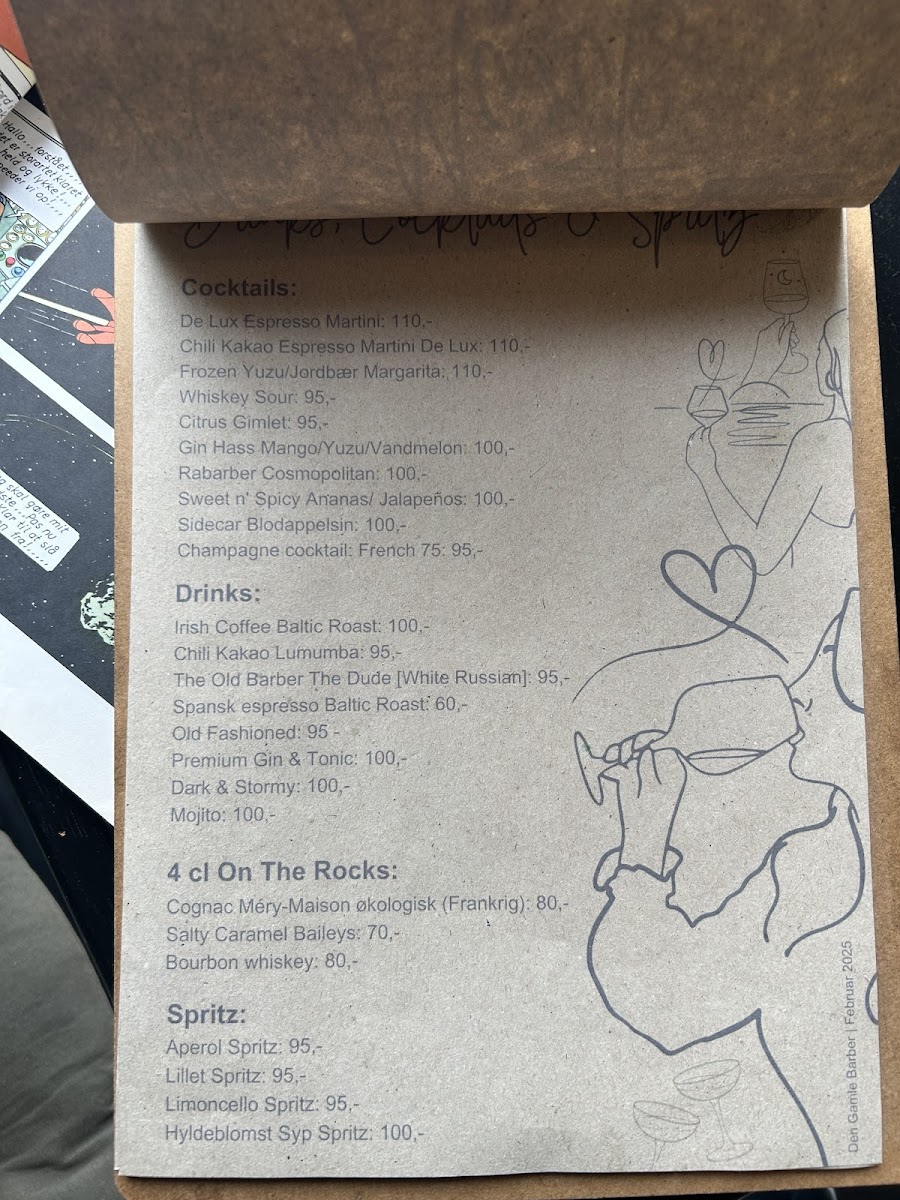 Drinks, Cocktails & Spritz
Cocktails:
De Lux Espresso Martini: 110,-
Chili Kakao Espresso Martini De Lux: 110,-
Frozen Yuzu/Jordbær Margarita: 110,-
Whiskey Sour: 95,-
Citrus Gimlet: 95,-
Gin Hass Mango/Yuzu/Vandmelon: 100,-
Rabarber Cosmopolitan: 100,-
Sweet n' Spicy Ananas/ Jalapeños: 100,-
Sidecar Blodappelsin: 100,-
Champagne cocktail: French 75: 95,-
Drinks:
Irish Coffee Baltic Roast: 100,-
Chili Kakao Lumumba: 95,-
The Old Barber The Dude [White Russian]: 95,-
Spansk espresso Baltic Roast: 60,-
Old Fashioned: 95 -
Premium Gin & Tonic: 100,-
Dark & Stormy: 100,-
Mojito: 100,-
4 cl On The Rocks:
Cognac Méry-Maison økologisk (Frankrig): 80,-
Salty Caramel Baileys: 70,-
Bourbon whiskey: 80,-
Spritz:
Aperol Spritz: 95,-
Lillet Spritz: 95,-
Limoncello Spritz: 95,-
Hyldeblomst Syp Spritz: 100,-
Den Gamle Barber | Februar 2025
Hallo... forstået...
et er storartet klaret
held og lykke!...
vi op!...
skal gøre mit
Pas nu
klar til at slå
fra!....